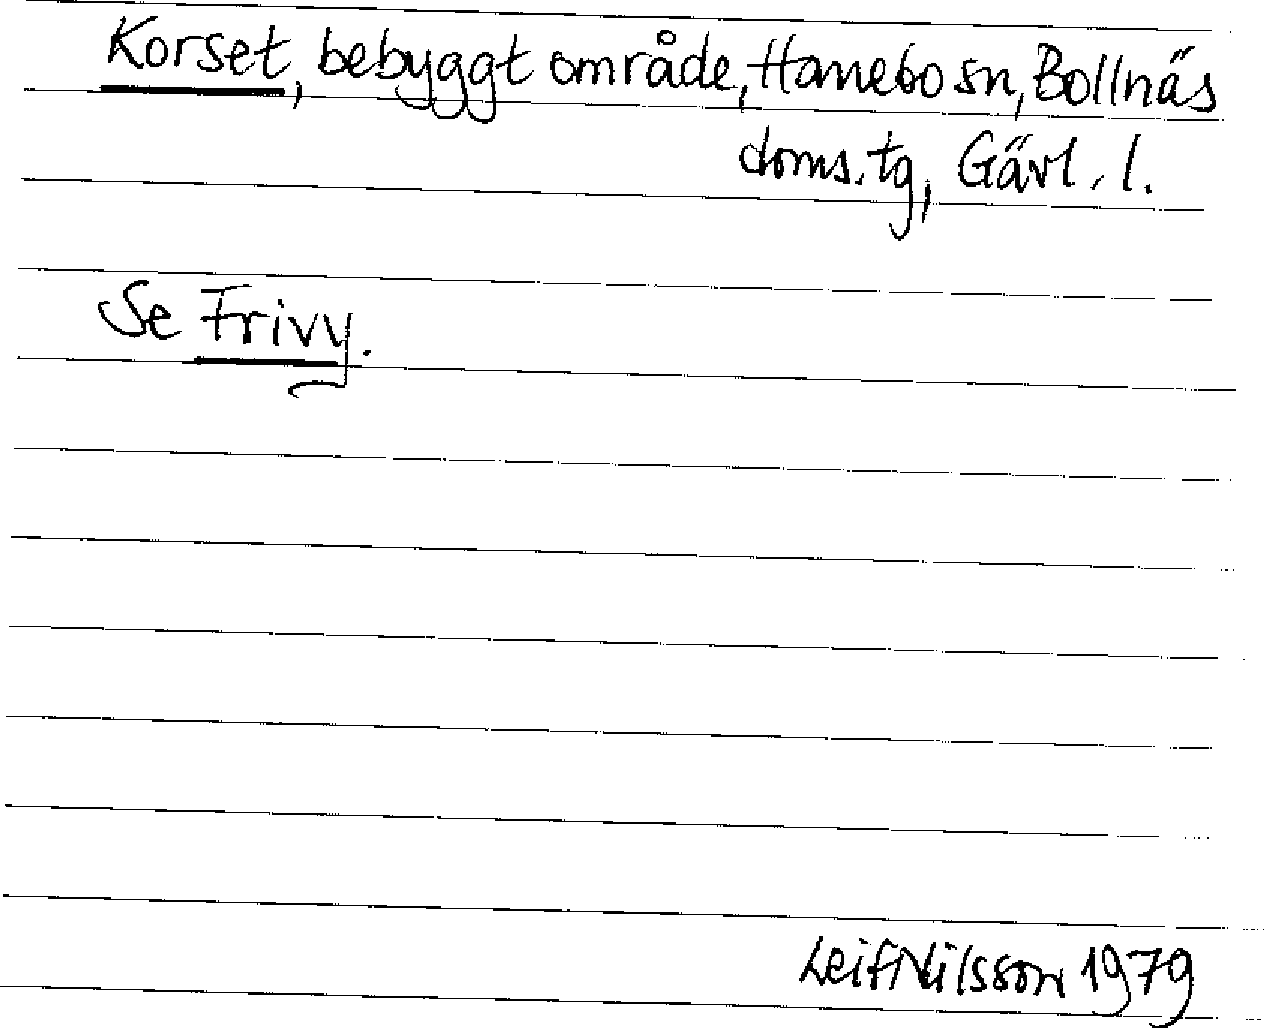 Korset, bebyggt område, Hanebo sn, Bollnäs
doms.tg, Gävl. l.
Se Frivy.
Leif Nilsson 1979